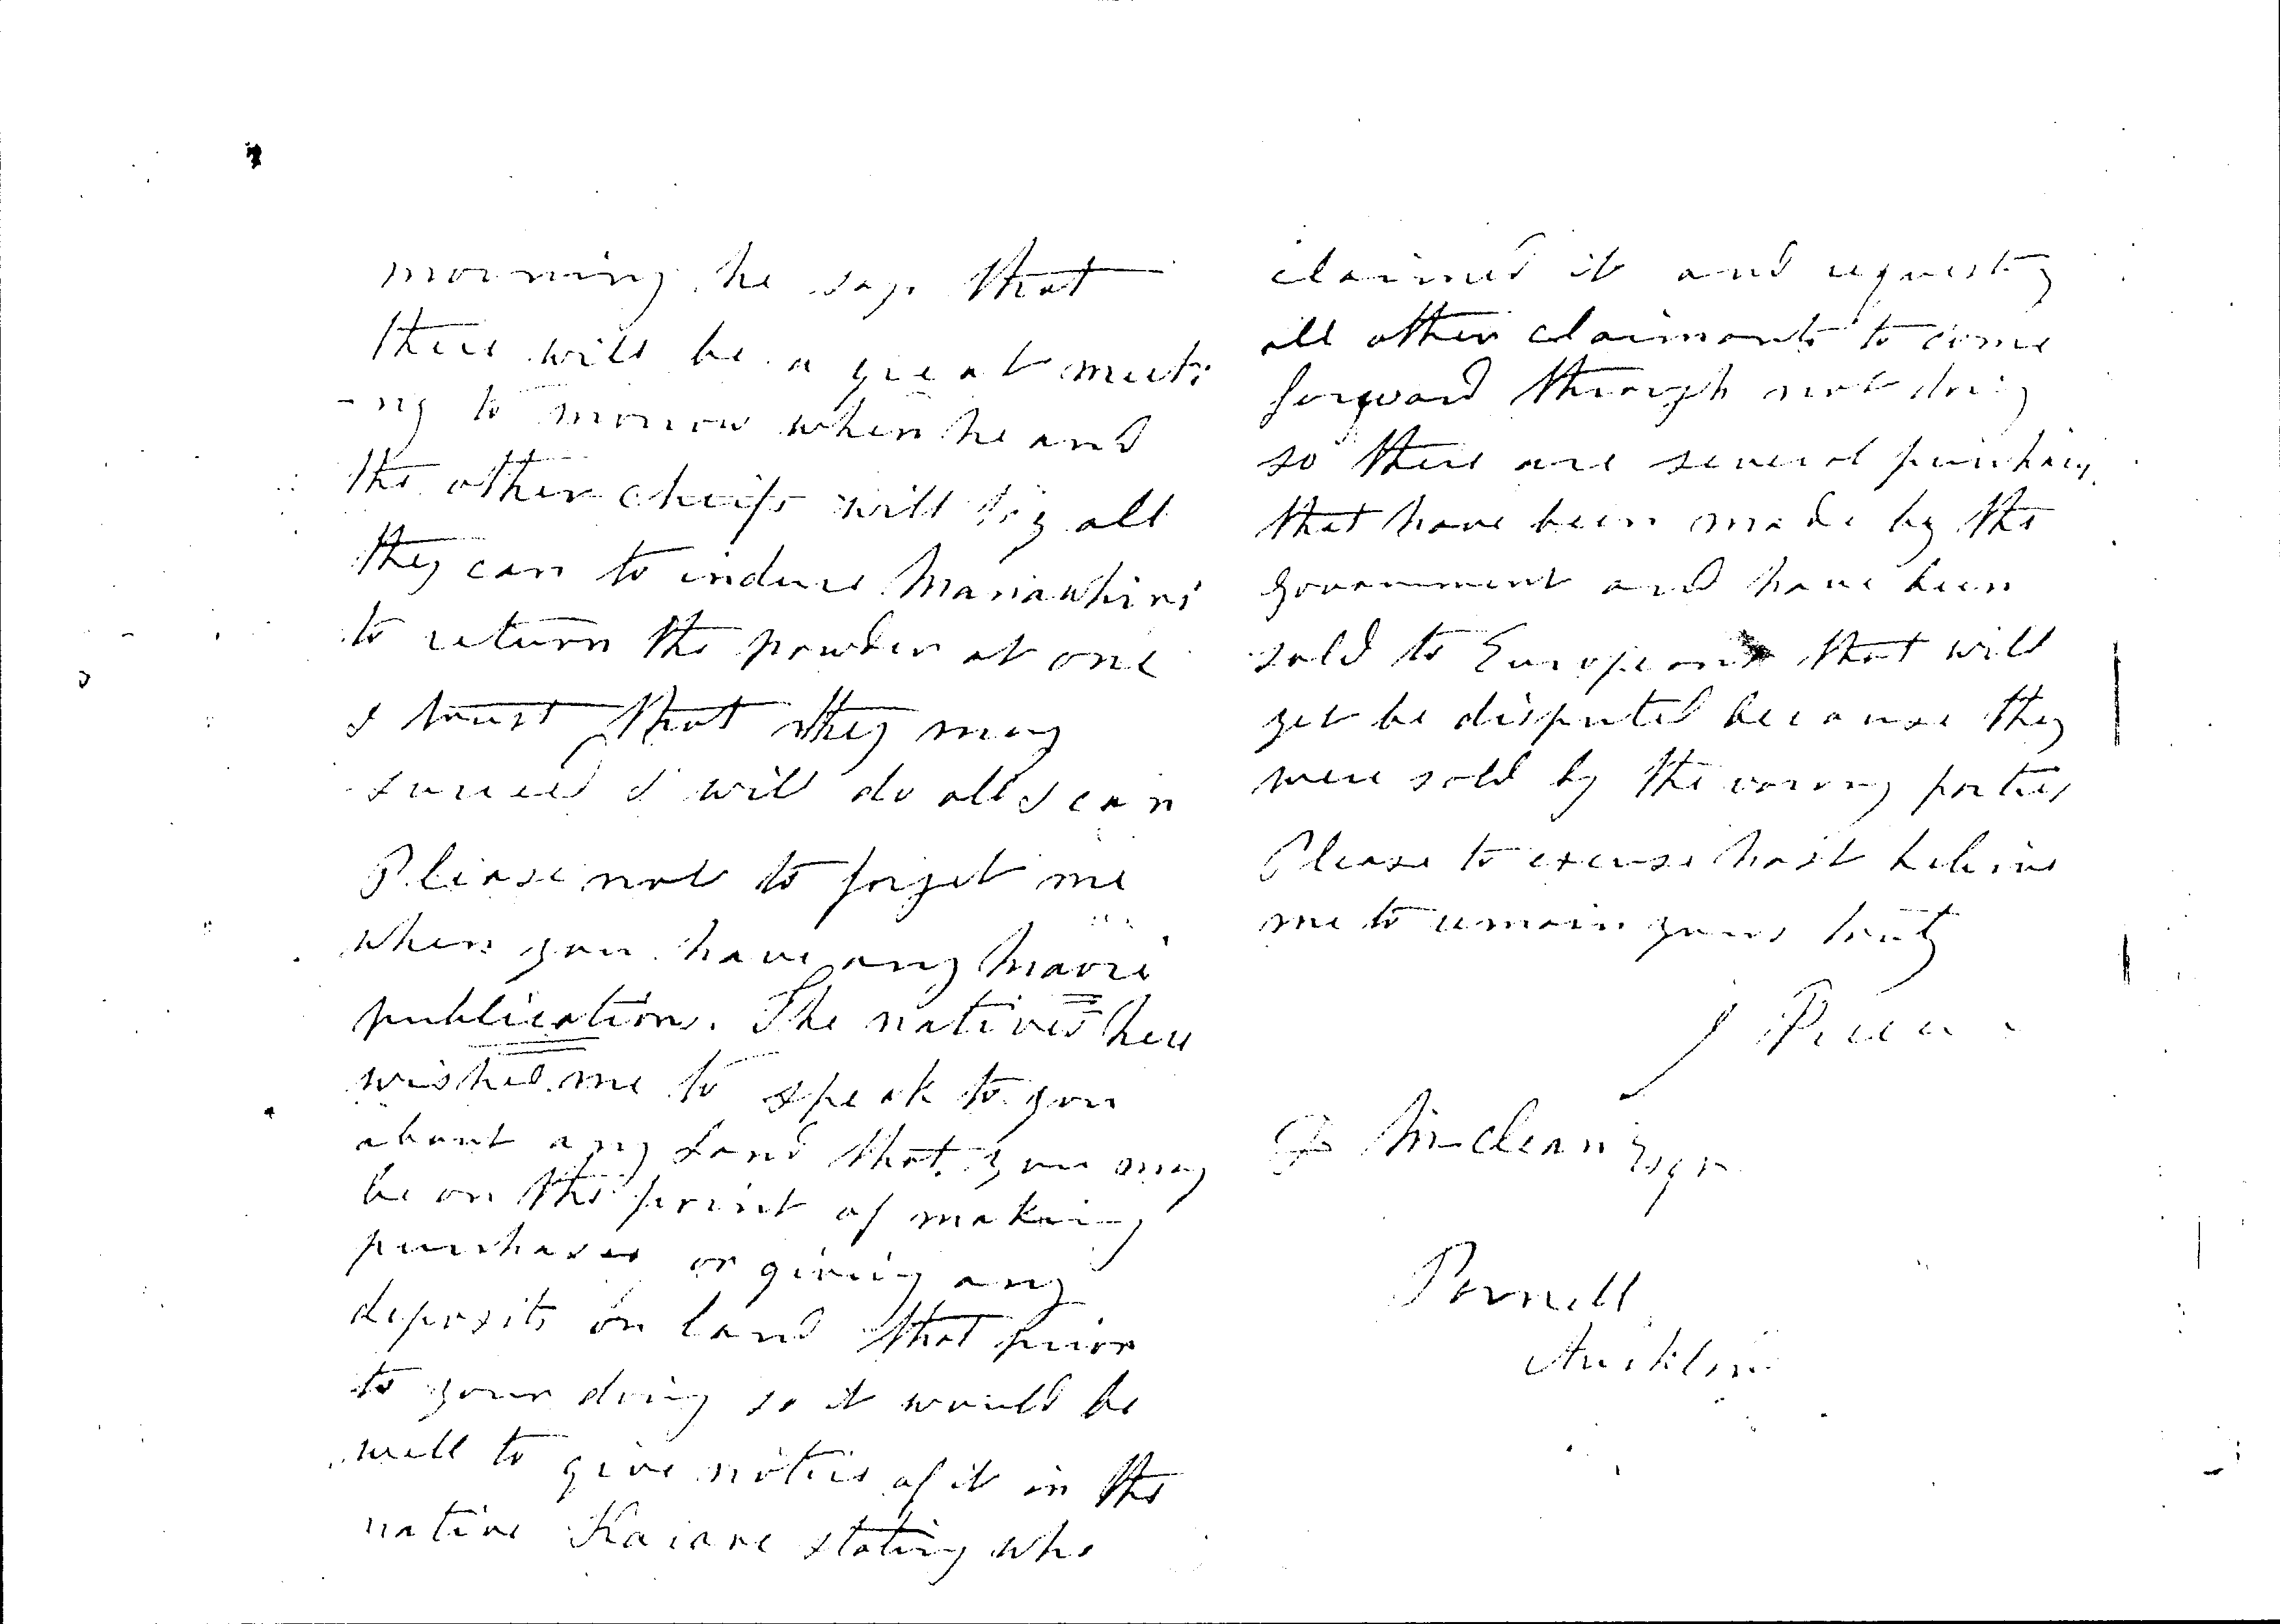 morning he says that
there will be a great meeti
-ng to morrow when he and
the other cheifs will try all
they can to induce Mananhiri
to return the powder at one
I trust that they may
succeed I will do all I can
Please not to forget me
when you have any Maori
publications. The natives here
wished me to speak to you
about any Land that you may
be on the point of making
purchases or giving any
deposits on land that prior
to your doing so it would be
well to give notice of it in the
native Karare stating who
claimed it and requesting
all other claimants to come
forward through not doing
so there are several purchases
that have been made by the
government and have been
sold to Europeans that will
yet be disputed because they
were sold by the wrong parties
Please to excuse hast beleive
me to remain yours truly
J Preece
D McLean Esqr
Parnell
Auckland